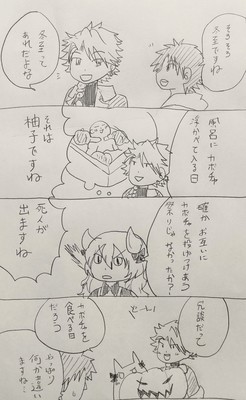 そろそろ
冬至ですね
冬至って
あれだよな
風呂にカボチャ
浮かべて入る日
それは
柚子ですね
確かお互いに
カボチャを投げつけあう
祭りじゃなかったか?
死人が
出ますね
冗談だって
カボチャを
食べる日
だろう
やっぱり
何か違い
ますね…